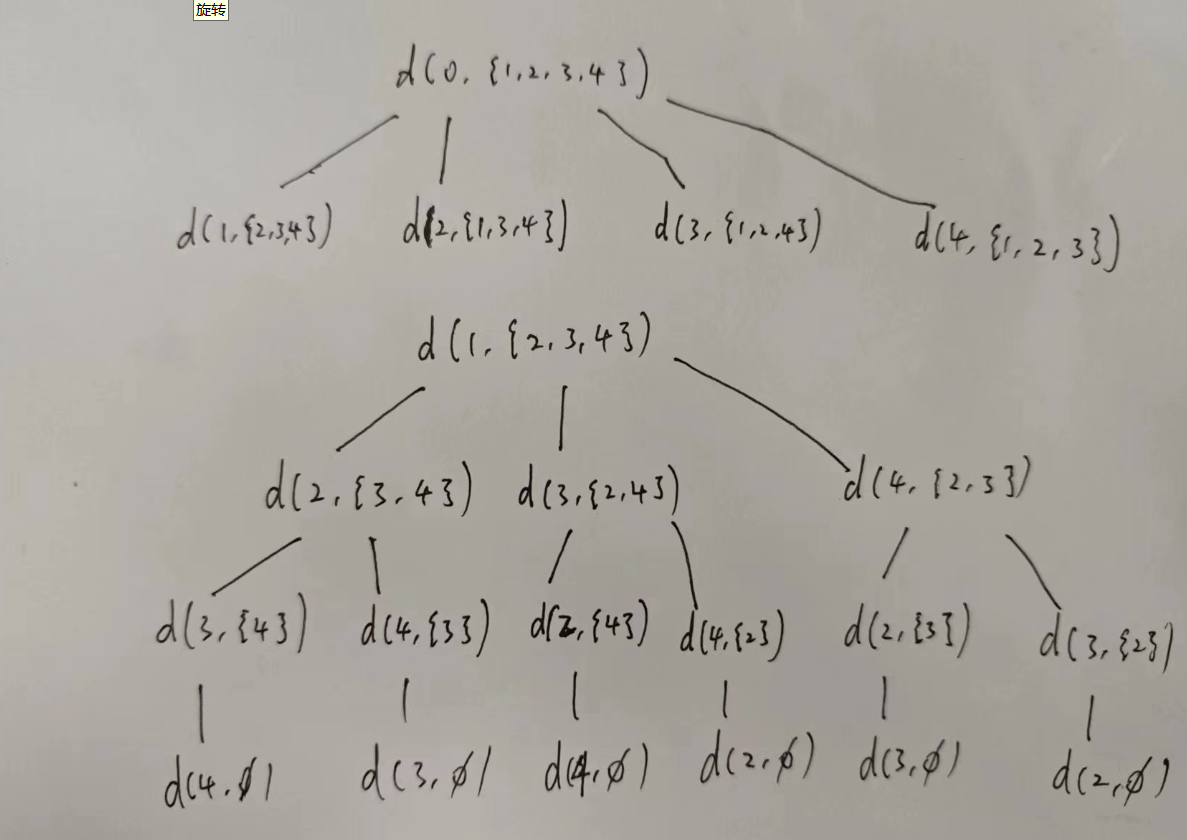 旋转
d(0, {1,2,3,4})
d(1,{2,3,4}) d(2,{1,3,4}) d(3,{1,2,4}) d(4,{1,2,3})
d(1,{2,3,4})
d(2,{3,4}) d(3,{2,4}) d(4,{2,3})
d(3,{4}) d(4,{3}) d(2,{4}) d(4,{2}) d(2,{3}) d(3,{2})
d(4,ϕ) d(3,ϕ) d(4,ϕ) d(2,ϕ) d(3,ϕ) d(2,ϕ)